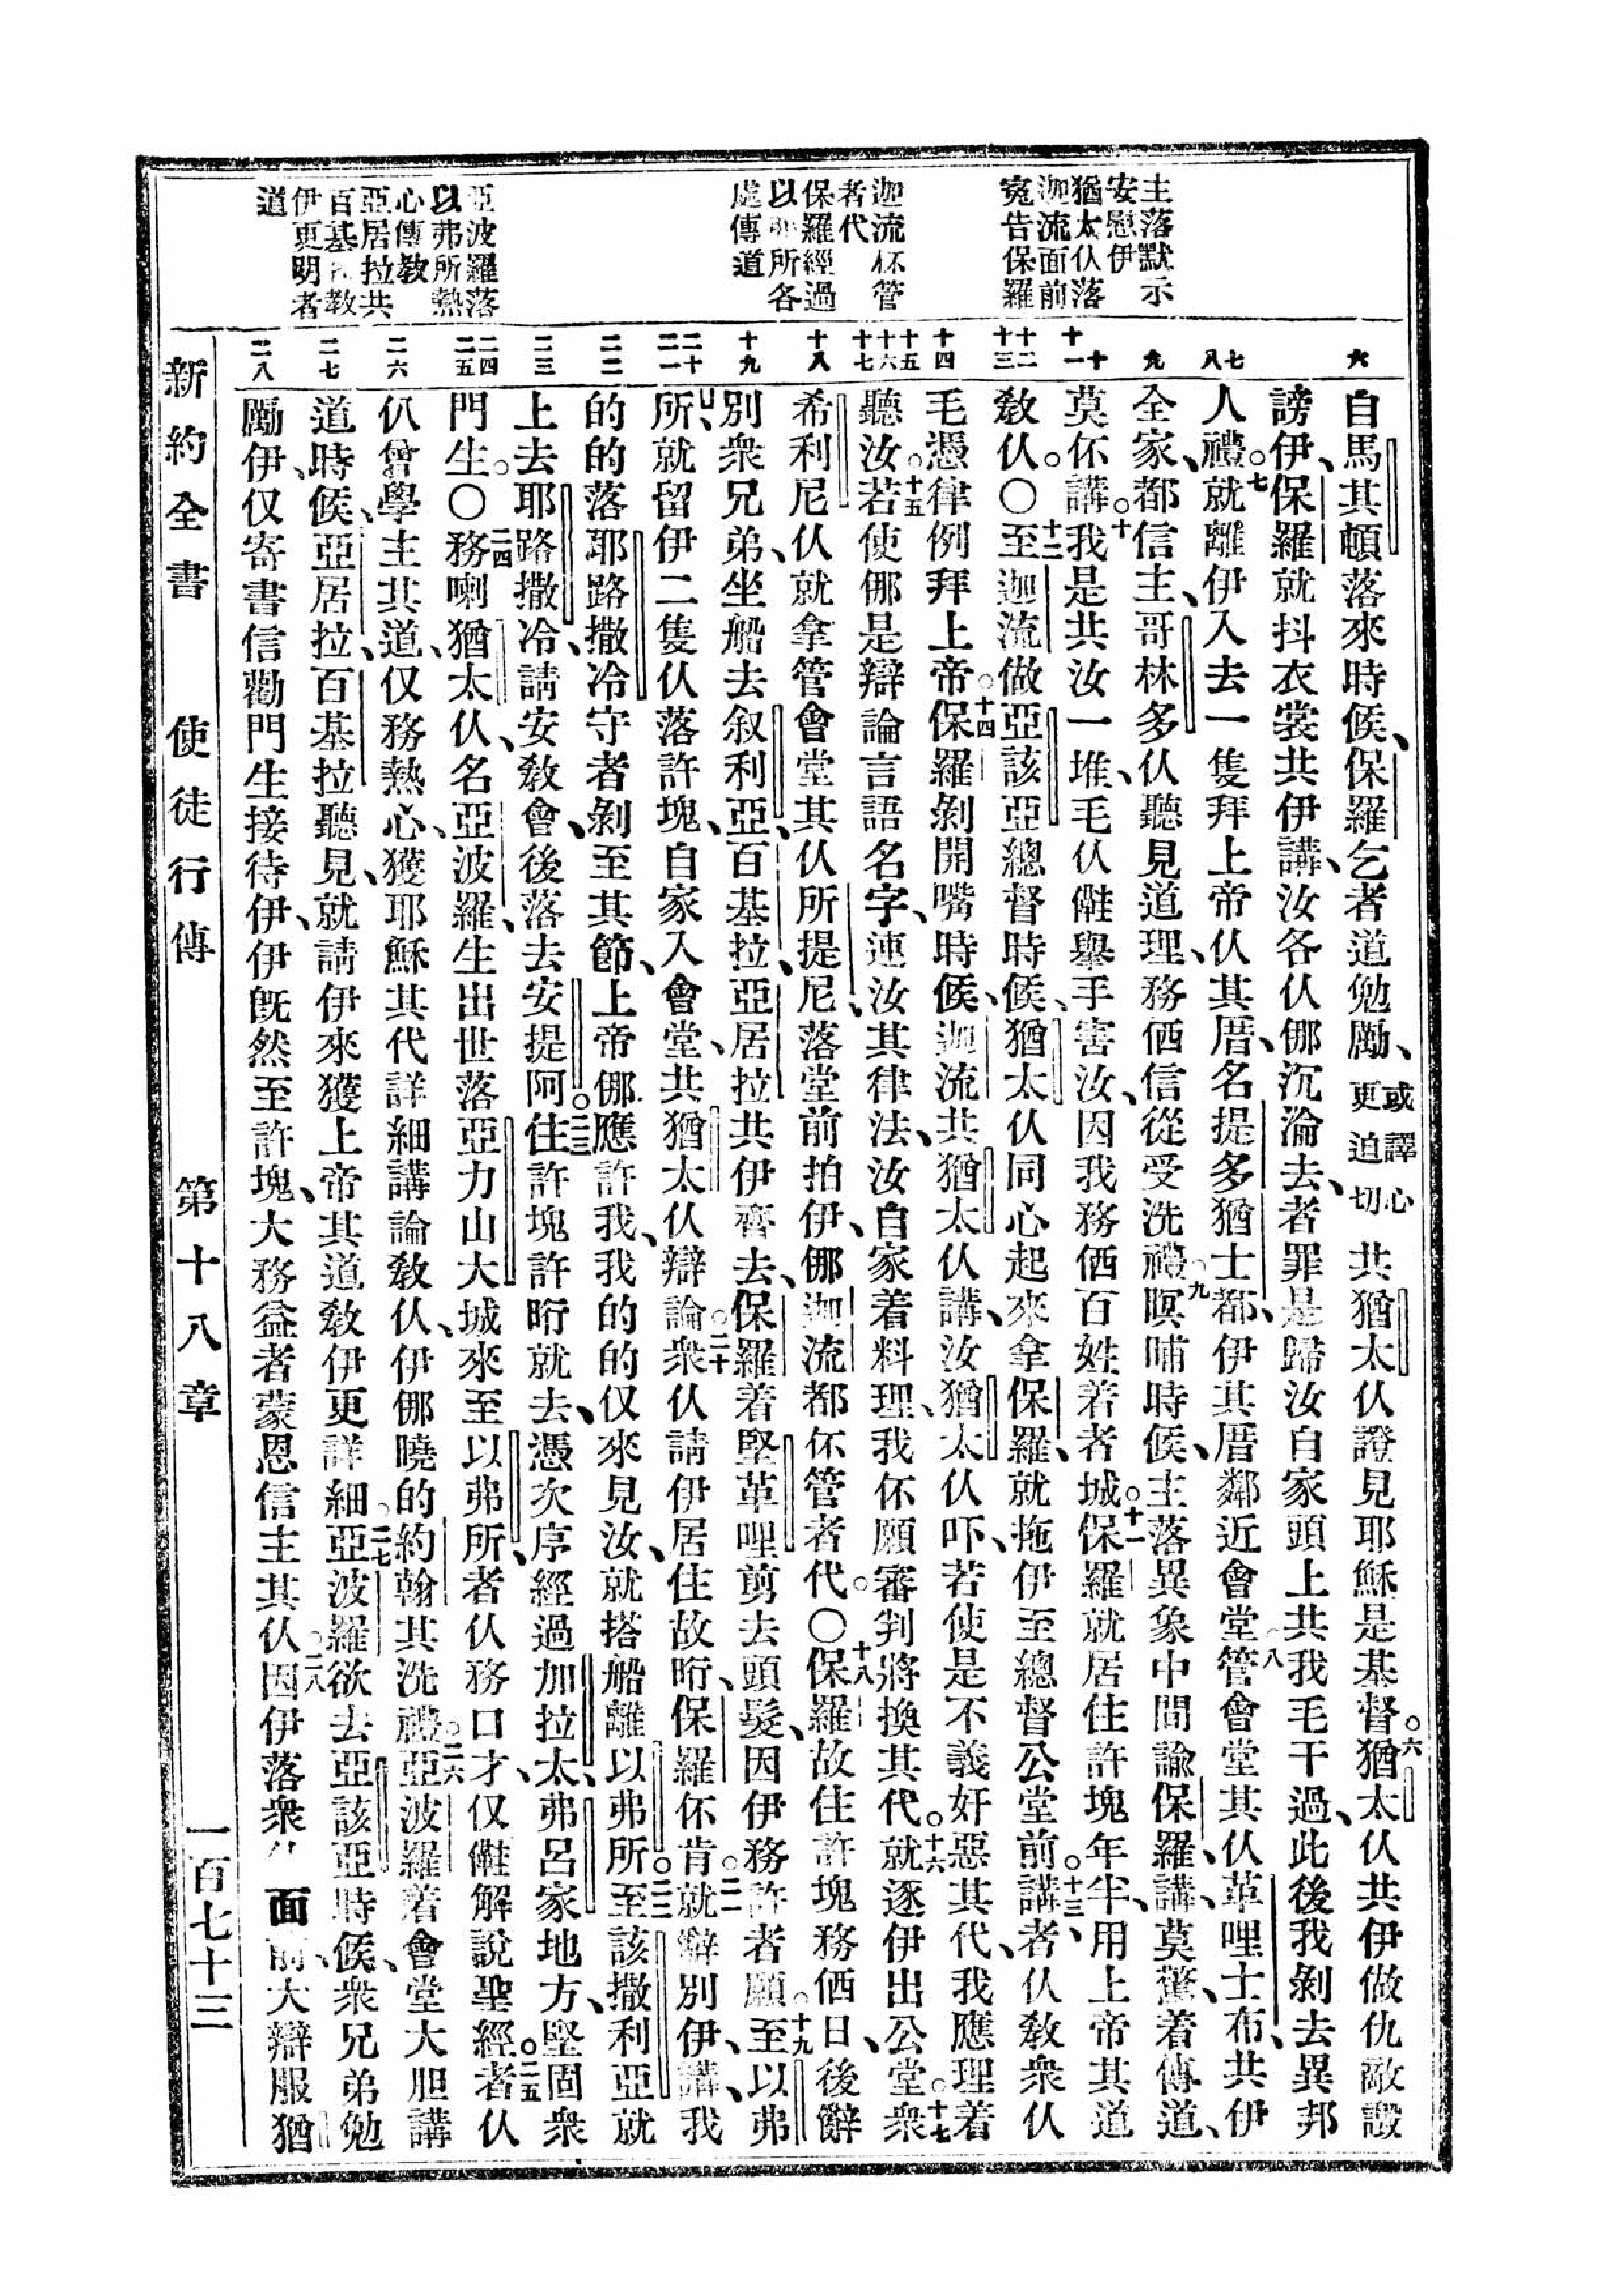 主落默示
安慰伊
猶太仈落
迦流面前
寃告保羅
迦流伓管
者代
保羅經過
以弗所各
處傳道
亞波羅落
以弗所熱
心傳教
亞居拉共
百基拉教
伊更明者
道
六
七
八
九
十
十一
十二
十三
十四
十五
十六
十七
十八
十九
二十
二一
二二
二三
二四
二五
二六
二七
二八
自馬其頓落來時候、保羅乞者道勉勵、或譯心更迫切共猶太仈證見耶穌是基督。六猶太仈共伊做仇敵譭
謗伊、保羅就抖衣裳共伊講、汝各仈㑚沉淪去、者罪是歸汝自家頭上共我毛干過、此後我剝去異邦
人禮。七就離伊入去一隻拜上帝仈其厝、名提多猶士都、伊其厝鄰近會堂。八管會堂其仈、革哩士布、共伊
全家、都信主、哥林多仈聽見道理、務㑄信從受洗禮。九暝晡時候、主落異象中間諭保羅、講、莫驚、着傳道、
莫伓講。十我是共汝一堆、毛仈儺舉手害汝、因我務㑄百姓着者城。十一保羅就居住許塊年半、用上帝其道
教仈。〇十二至迦流做亞該亞總督時候、猶太仈同心起來拿保羅、就拖伊至總督公堂前。十三講、者仈教衆仈
毛憑律例拜上帝。十四保羅剝開嘴時候、迦流共猶太仈講、汝猶太仈吓、若使是不義奸惡其代、我應理着
聽汝。十五若使㑚是辯論言語名字、連汝其律法、汝自家着料理、我伓願審判將換其代。十六就逐伊出公堂。十七衆
希利尼仈就拿管會堂其仈所提尼、落堂前拍伊、㑚迦流都伓管者代。〇十八保羅故住許塊務㑄日、後辭
別衆兄弟、坐船去叙利亞、百基拉、亞居拉共伊齊去、保羅着堅革哩剪去頭髮、因伊務許者願。十九至以弗
所、就留伊二隻仈落許塊、自家入會堂、共猶太仈辯論。二十衆仈請伊居住故㫠、保羅伓肯。二一就辭別伊、講、我
的的落耶路撒冷守者剝至其節、上帝㑚應許我、我的的仅來見汝、就搭船離以弗所。二二至該撒利亞就
上去耶路撒冷、請安教會、後落去安提阿。二三住許塊許㫠就去、憑次序經過加拉太、弗呂家地方、堅固衆
門生。〇二四務喇猶太仈、名亞波羅、生出世落亞力山大城來至以弗所、者仈務口才、仅儺解說聖經。二五者仈
仈曾學主其道、仅務熱心、獲耶穌其代詳細講論教仈、伊㑚曉的約翰其洗禮。二六亞波羅着會堂大胆講
道時候、亞居拉、百基拉聽見、就請伊來獲上帝其道教伊更詳細。二七亞波羅欲去亞該亞時候、衆兄弟勉
勵伊、仅寄書信勸門生接待伊、伊既然至許塊、大務益者蒙恩信主其仈。二八因伊落衆仈面前、大辯服猶
新約全書 使徒行傳 第十八章 一百七十三